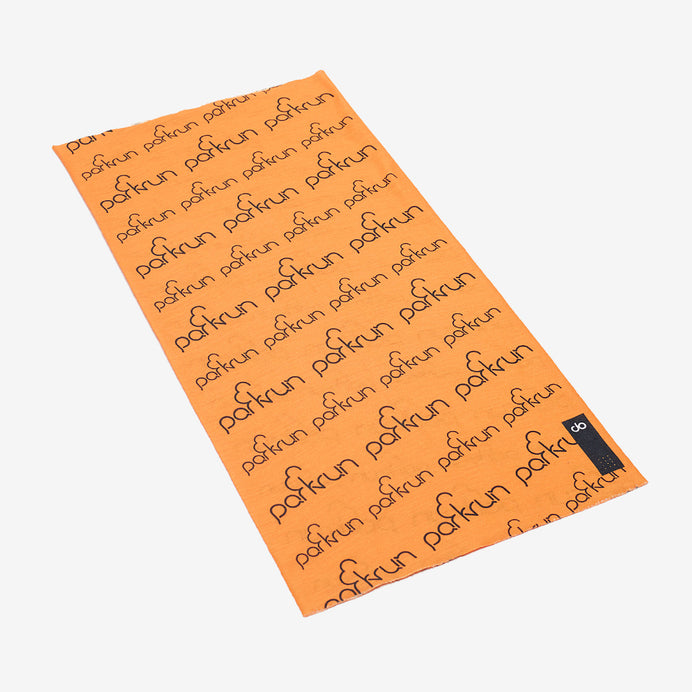 parkrun parkrun parkrun
parkrun parkrun parkrun
parkrun parkrun parkrun parkrun
parkrun parkrun parkrun
parkrun parkrun parkrun parkrun
parkrun parkrun parkrun
parkrun parkrun parkrun parkrun
parkrun parkrun parkrun
parkrun parkrun parkrun parkrun
parkrun parkrun parkrun
parkrun parkrun parkrun parkrun
parkrun parkrun parkrun
parkrun parkrun